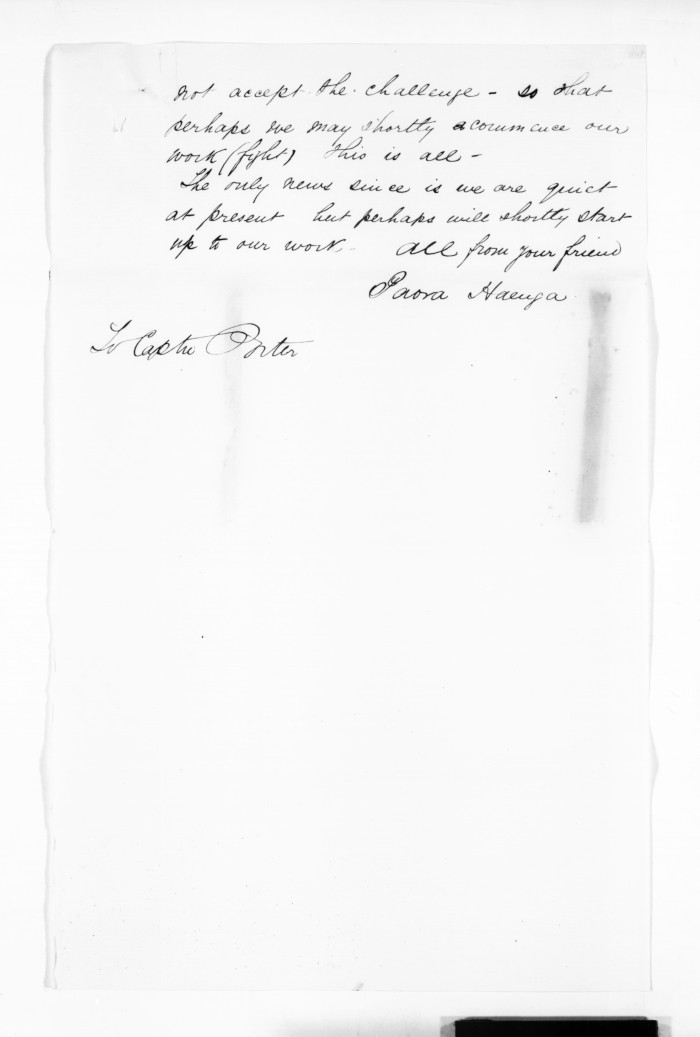 not accept the challenge - so that
perhaps we may shortly acommence our
work (fight) this is all -
The only news since is we are quiet
at present but perhaps will shortly start
up to our work - All from your friend
Paora Haenga
To Captn Porter